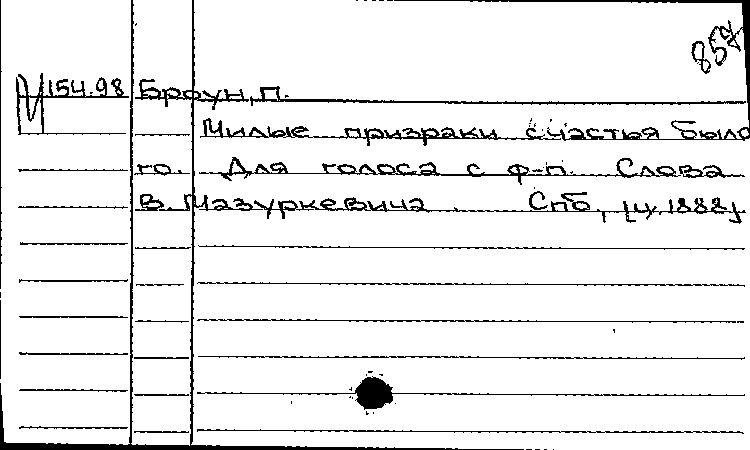 857
М154.98 Браун, П.
Милые призраки счастья было
го. Для голоса с ф-п. Слова
В. Мазуркевича. Спб, [ц. 1888]